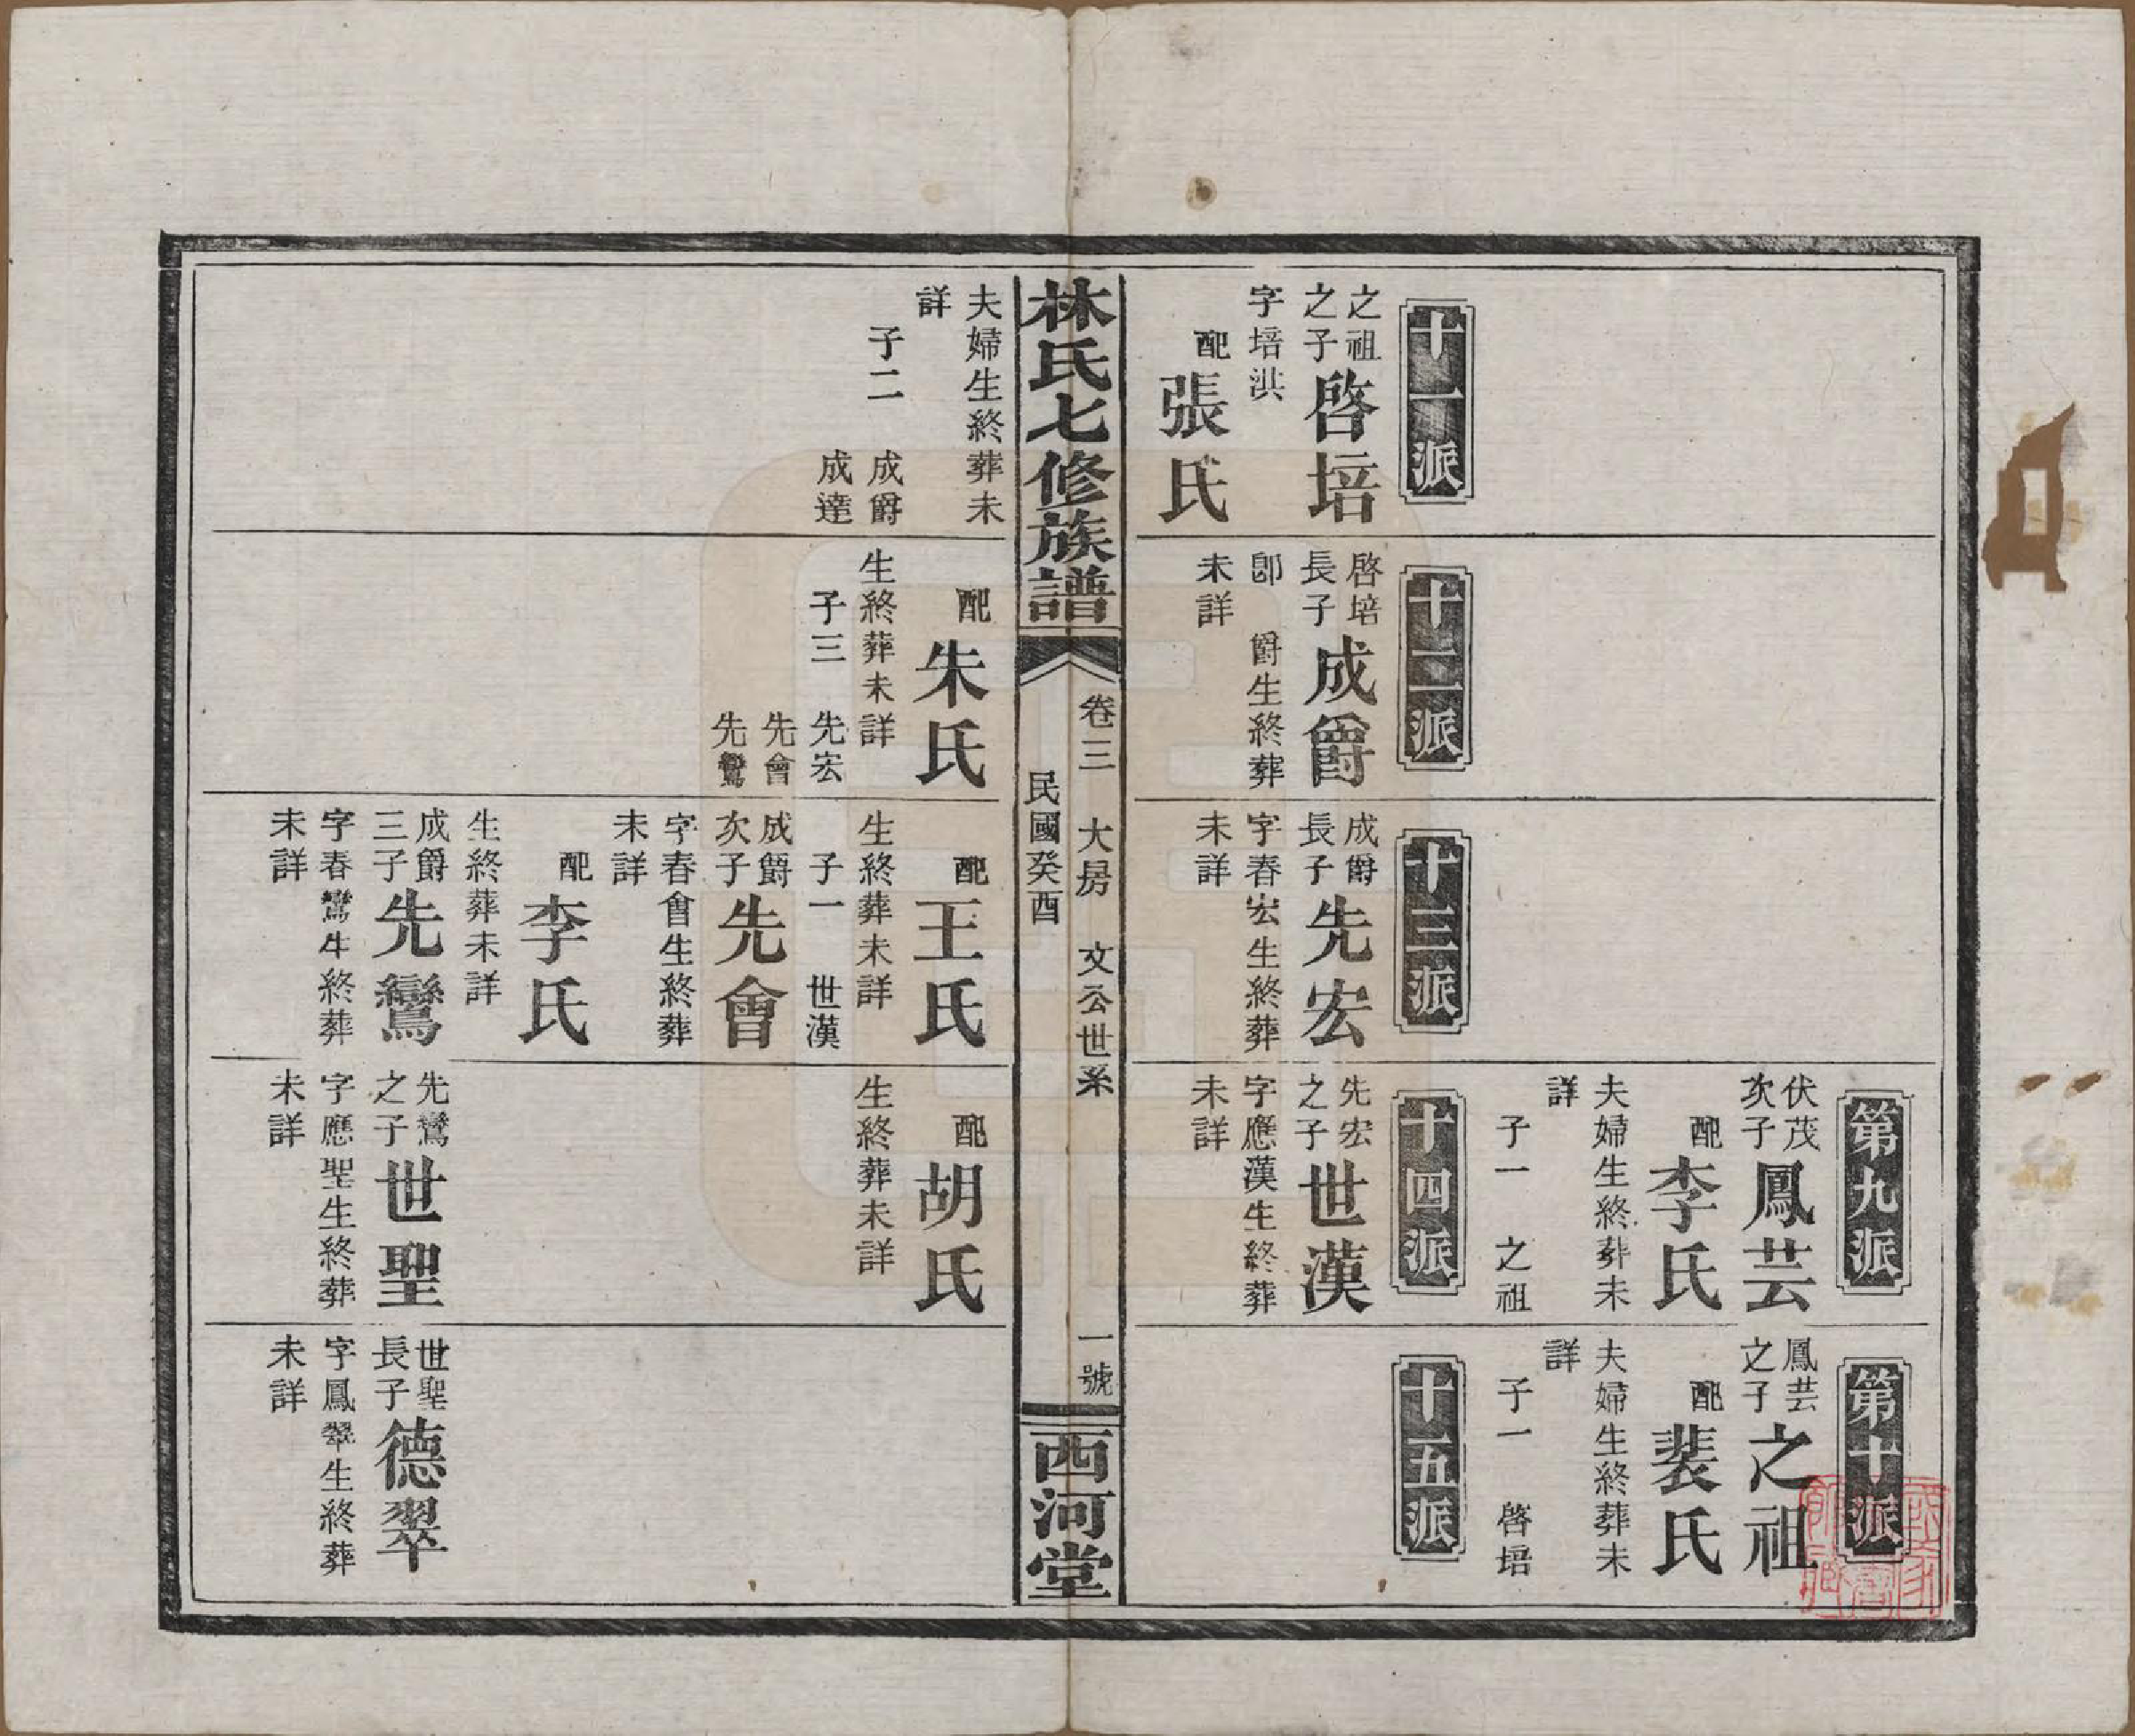 第九派
伏茂
次子
鳳芸
配
李氏
夫婦生終葬未
詳
子一 之祖
第十派
鳳芸
之子
之祖
配
裴氏
夫婦生終葬未
詳
子一 啓培
十一派
之祖
之子
啓培
字培洪
配
張氏
十二派
啓培
長子
成爵
郎 爵生終葬
未詳
十三派
成爵
長子
先宏
字春宏生終葬
未詳
十四派
先宏
之子
世漢
字應漢生終葬
未詳
十五派
林氏七修族譜
卷三 大房 文公世系 一號
民國癸酉
西河堂
夫婦生終葬未
詳
子二 成爵
成達
配
朱氏
生終葬未詳
子三 先宏
先會
先鸞
配
王氏
生終葬未詳
子一 世漢
成爵
次子
先會
字春會生終葬
未詳
配
李氏
生終葬未詳
成爵
三子
先鸞
字春鸞生終葬
未詳
配
胡氏
生終葬未詳
先鸞
之子
世聖
字應聖生終葬
未詳
世聖
長子
德翠
字鳳翠生終葬
未詳